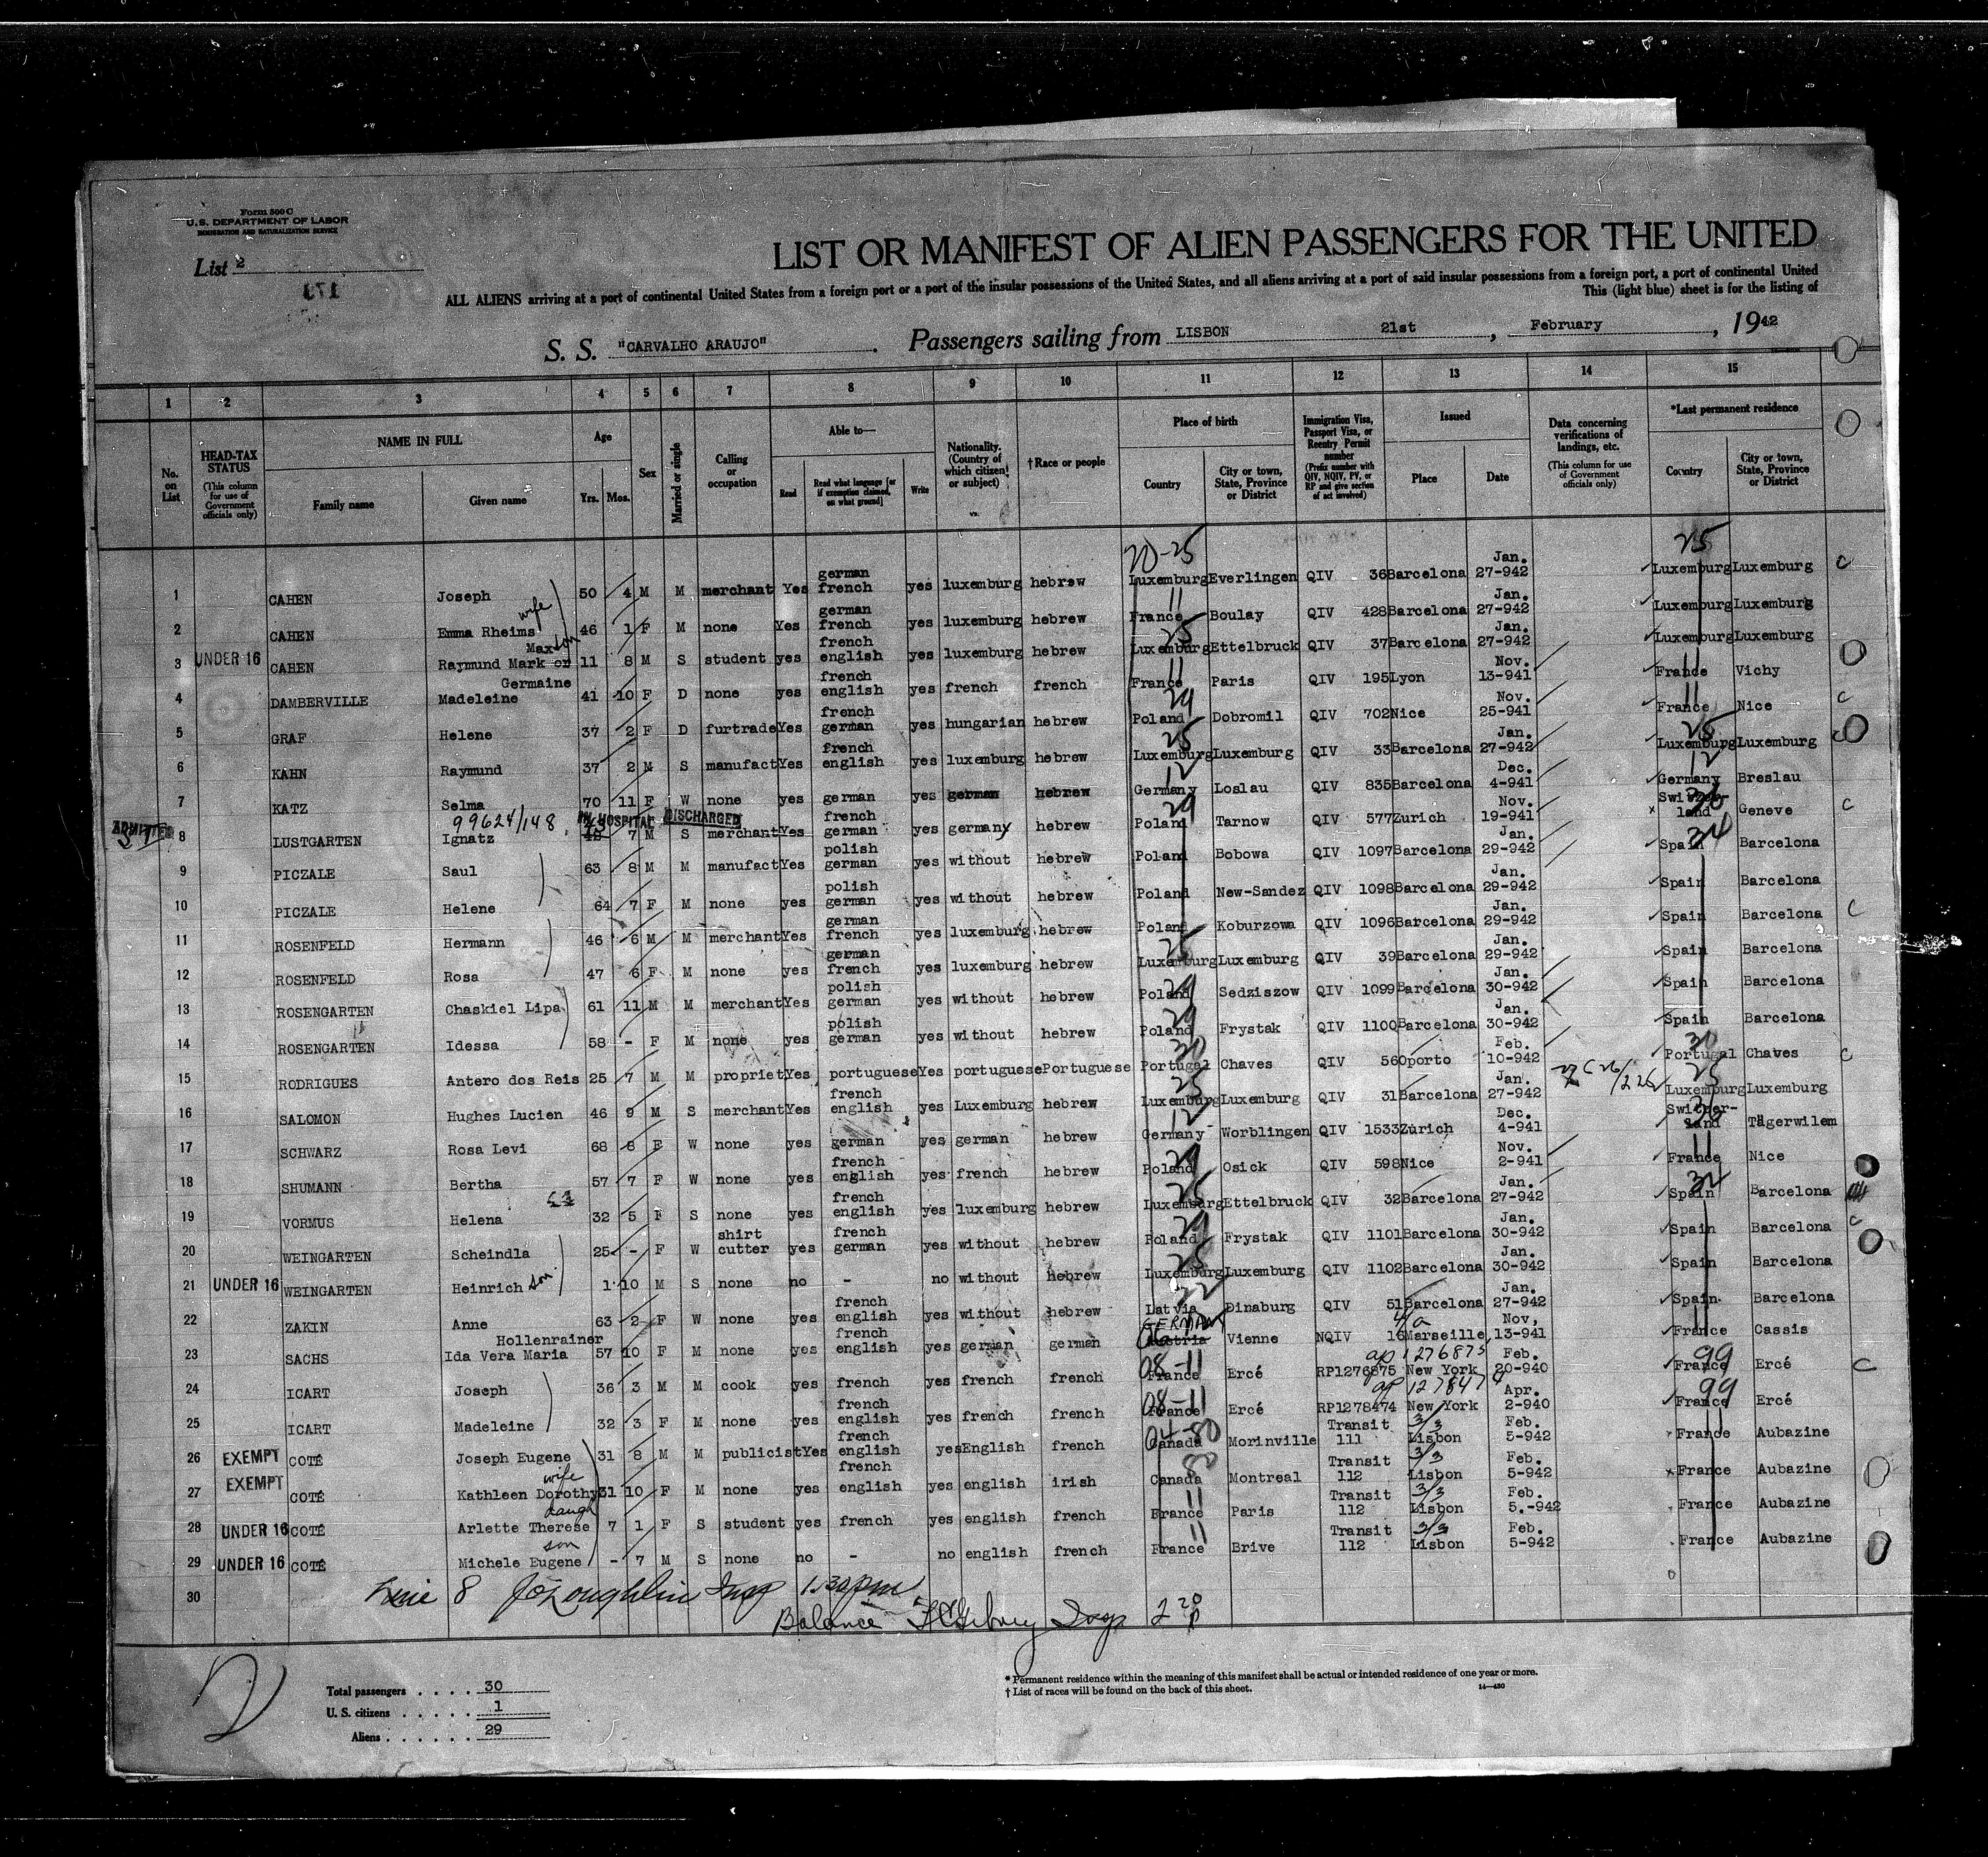 Form 500 C
U. S. DEPARTMENT OF LABOR
IMMIGRATION AND NATURALIZATION SERVICE
List 2
LIST OR MANIFEST OF ALIEN PASSENGERS FOR THE UNITED
ALL ALIENS arriving at a port of continental United States from a foreign port or a port of the insular possessions of the United States, and all aliens arriving at a port of said insular possessions from a foreign port, a port of continental United
This (light blue) sheet is for the listing of
S. S. "CARVALHO ARAUJO" . Passengers sailing from LISBON 21st , February , 1942
1 2 3 4 5 6 7 8 9 10 11 12 13 14 15
No. on List
HEAD-TAX STATUS (This column for use of Government officials only)
NAME IN FULL Family name Given name
Age Yrs. Mos.
Sex
Married or single
Calling or occupation
Able to— Read Read what language [or if exemption claimed, on what ground] Write
Nationality. (Country of which citizen or subject)
† Race or people
Place of birth Country City or town, State, Province or District
Immigration Visa, Passport Visa, or Reentry Permit number (Prefix number with QIV, NQIV, PV, or RP and give section of act involved)
Issued Place Date
Data concerning verifications of landings, etc. (This column for use of Government officials only)
*Last permanent residence Country City or town, State, Province or District
20-25 25
1 CAHEN Joseph 50 4 M M merchant Yes german french yes luxemburg hebrew Luxemburg Everlingen QIV 36 Barcelona Jan. 27-942 Luxemburg Luxemburg C
2 CAHEN Emma Rheims wife 46 1 F M none Yes german french yes luxemburg hebrew 11 France Boulay QIV 428 Barcelona Jan. 27-942 Luxemburg Luxemburg
3 UNDER 16 CAHEN Raymund Mark or Max son 11 8 M S student yes french english yes luxemburg hebrew 25 Luxemburg Ettelbruck QIV 37 Barcelona Jan. 27-942 Luxemburg Luxemburg
4 DAMBERVILLE Madeleine Germaine 41 10 F D none yes french english yes french french 11 France Paris QIV 195 Lyon Nov. 13-941 11 France Vichy
5 GRAF Helene 37 2 F D furtrade Yes french german yes hungarian hebrew 29 Poland Dobromil QIV 702 Nice Nov. 25-941 11 France Nice C
6 KAHN Raymund 37 2 M S manufact Yes french english yes luxemburg hebrew 25 Luxemburg Luxemburg QIV 33 Barcelona Jan. 27-942 25 Luxemburg Luxemburg
7 KATZ Selma 70 11 F W none yes german yes german hebrew 12 Germany Loslau QIV 835 Barcelona Dec. 4-941 12 Germany Breslau
ADMITTED 99624/148 IN HOSPITAL DISCHARGED
8 LUSTGARTEN Ignatz 7 M S merchant Yes french german yes germany hebrew 29 Poland Tarnow QIV 577 Zurich Nov. 19-941 Switzer-land Geneve C
9 PICZALE Saul 63 8 M M manufact Yes polish german yes without hebrew Poland Bobowa QIV 1097 Barcelona Jan. 29-942 34 Spain Barcelona
10 PICZALE Helene 64 7 F M none yes polish german yes without hebrew Poland New-Sandez QIV 1098 Barcelona Jan. 29-942 Spain Barcelona
11 ROSENFELD Hermann 46 6 M M merchant Yes german french yes luxemburg hebrew Poland Koburzowa QIV 1096 Barcelona Jan. 29-942 Spain Barcelona C
12 ROSENFELD Rosa 47 6 F M none yes german french yes luxemburg hebrew 25 Luxemburg Luxemburg QIV 39 Barcelona Jan. 29-942 Spain Barcelona
13 ROSENGARTEN Chaskiel Lipa 61 11 M M merchant Yes polish german yes without hebrew 29 Poland Sedziszow QIV 1099 Barcelona Jan. 30-942 Spain Barcelona
14 ROSENGARTEN Idessa 58 - F M none yes polish german yes without hebrew 29 Poland Frystak QIV 1100 Barcelona Jan. 30-942 Spain Barcelona
15 RODRIGUES Antero dos Reis 25 7 M M propriet Yes portuguese Yes portuguese Portuguese 30 Portugal Chaves QIV 56 Oporto Feb. 10-942 30 Portugal Chaves C
16 SALOMON Hughes Lucien 46 9 M S merchant Yes french english yes Luxemburg hebrew 25 Luxemburg Luxemburg QIV 31 Barcelona Jan. 27-942 25 Luxemburg Luxemburg
17 SCHWARZ Rosa Levi 68 8 F W none yes german yes german hebrew 12 Germany Worblingen QIV 1533 Zurich Dec. 4-941 36 Switzer-land Tägerwilem
18 SHUMANN Bertha 57 7 F W none yes french english yes french hebrew 29 Poland Osick QIV 598 Nice Nov. 2-941 11 France Nice
19 VORMUS Helena 32 5 F S none yes french english yes luxemburg hebrew 25 Luxemburg Ettelbruck QIV 32 Barcelona Jan. 27-942 34 Spain Barcelona
20 WEINGARTEN Scheindla 25 - F W shirt cutter yes french german yes without hebrew 29 Poland Frystak QIV 1101 Barcelona Jan. 30-942 Spain Barcelona C
21 UNDER 16 WEINGARTEN Heinrich son 1 10 M S none no - no without hebrew 25 Luxemburg Luxemburg QIV 1102 Barcelona Jan. 30-942 Spain Barcelona
22 ZAKIN Anne 63 2 F W none yes french english yes without hebrew 22 Latvia Dinaburg QIV 51 Barcelona Jan. 27-942 Spain Barcelona
23 SACHS Ida Vera Maria Hollenrainer 57 10 F M none yes french english yes german german GERMANY Austria Vienne NQIV 16 4/a Marseille Nov, 13-941 11 France Cassis
24 ICART Joseph 36 3 M M cook yes french yes french french 08-11 France Ercé RP1276875 ap 1276875 New York Feb. 20-940 99 France Ercé C
25 ICART Madeleine 32 3 F M none yes french english yes french french 08-11 France Ercé RP1278474 ap 1278474 New York Apr. 2-940 99 France Ercé
26 EXEMPT COTÉ Joseph Eugene 31 8 M M publicist Yes french english yes English french 04-80 Canada Morinville Transit 111 3/3 Lisbon Feb. 5-942 France Aubazine
27 EXEMPT COTÉ Kathleen Dorothy wife 31 10 F M none yes french english yes english irish 80 Canada Montreal Transit 112 3/3 Lisbon Feb. 5-942 France Aubazine
28 UNDER 16 COTÉ Arlette Therese daugh 7 1 F S student yes french yes english french 11 France Paris Transit 112 3/3 Lisbon Feb. 5.-942 France Aubazine
29 UNDER 16 COTÉ Michele Eugene son - 7 M S none no - no english french 11 France Brive Transit 112 3/3 Lisbon Feb. 5-942 France Aubazine
30 Line 8 J O'Loughlin Insp 1.30 pm
Balance Insp 2 20 p
Total passengers . . . . 30
U. S. citizens . . . . . 1
Aliens . . . . . . 29
* Permanent residence within the meaning of this manifest shall be actual or intended residence of one year or more.
† List of races will be found on the back of this sheet.
14—430